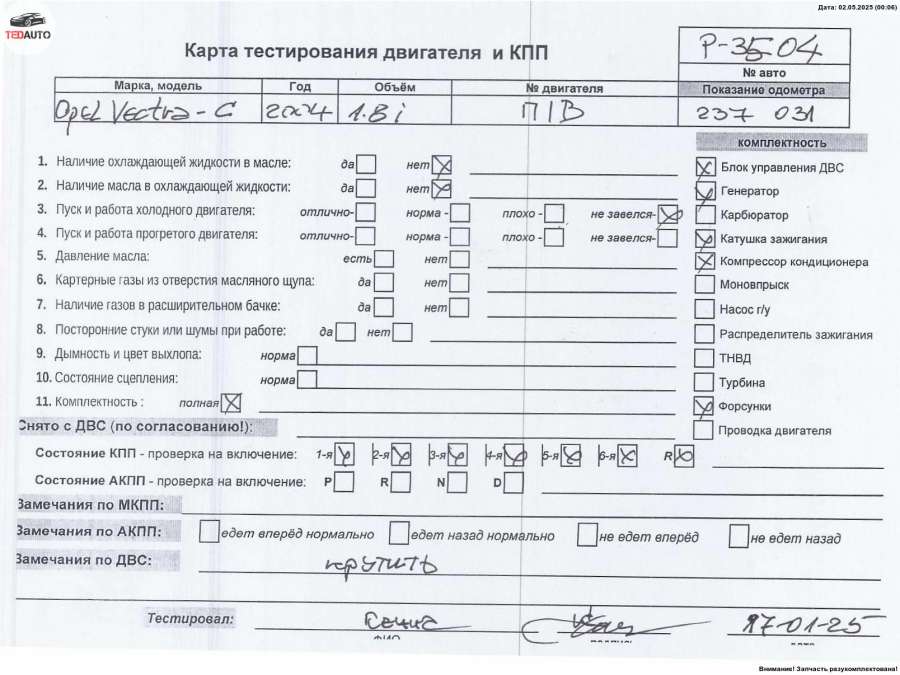 Дата: 02.05.2025 (00:06)
TEDAUTO
Карта тестирования двигателя и КПП
P-3504
№ авто
Марка, модель Год Объём № двигателя Показание одометра
Opel Vectra-C 2004 1.8i П/В 237 031
комплектность
1. Наличие охлаждающей жидкости в масле: да нет Блок управления ДВС
2. Наличие масла в охлаждающей жидкости: да нет Генератор
3. Пуск и работа холодного двигателя: отлично- норма - плохо - не завелся- Карбюратор
4. Пуск и работа прогретого двигателя: отлично- норма - плохо - не завелся- Катушка зажигания
5. Давление масла: есть нет Компрессор кондиционера
6. Картерные газы из отверстия масляного щупа: да нет Моновпрыск
7. Наличие газов в расширительном бачке: да нет Насос г/у
8. Посторонние стуки или шумы при работе: да нет Распределитель зажигания
9. Дымность и цвет выхлопа: норма ТНВД
10. Состояние сцепления: норма Турбина
11. Комплектность : полная Форсунки
Снято с ДВС (по согласованию!): Проводка двигателя
Состояние КПП - проверка на включение: 1-я 2-я 3-я 4-я 5-я 6-я R
Состояние АКПП - проверка на включение: P R N D
Замечания по МКПП:
Замечания по АКПП: едет вперёд нормально едет назад нормально не едет вперёд не едет назад
Замечания по ДВС: крутить
Тестировал: 17-01-25
ФИО подпись дата
Внимание! Запчасть разукомплектована!